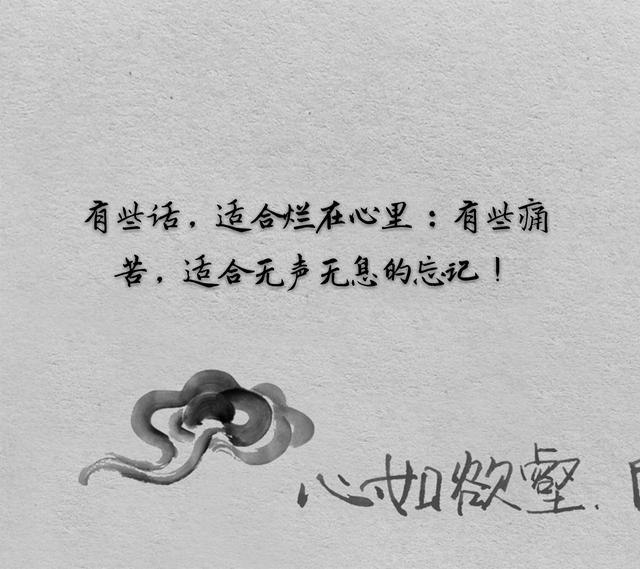 有些话，适合烂在心里：有些痛
苦，适合无声无息的忘记！
心如欲壑.